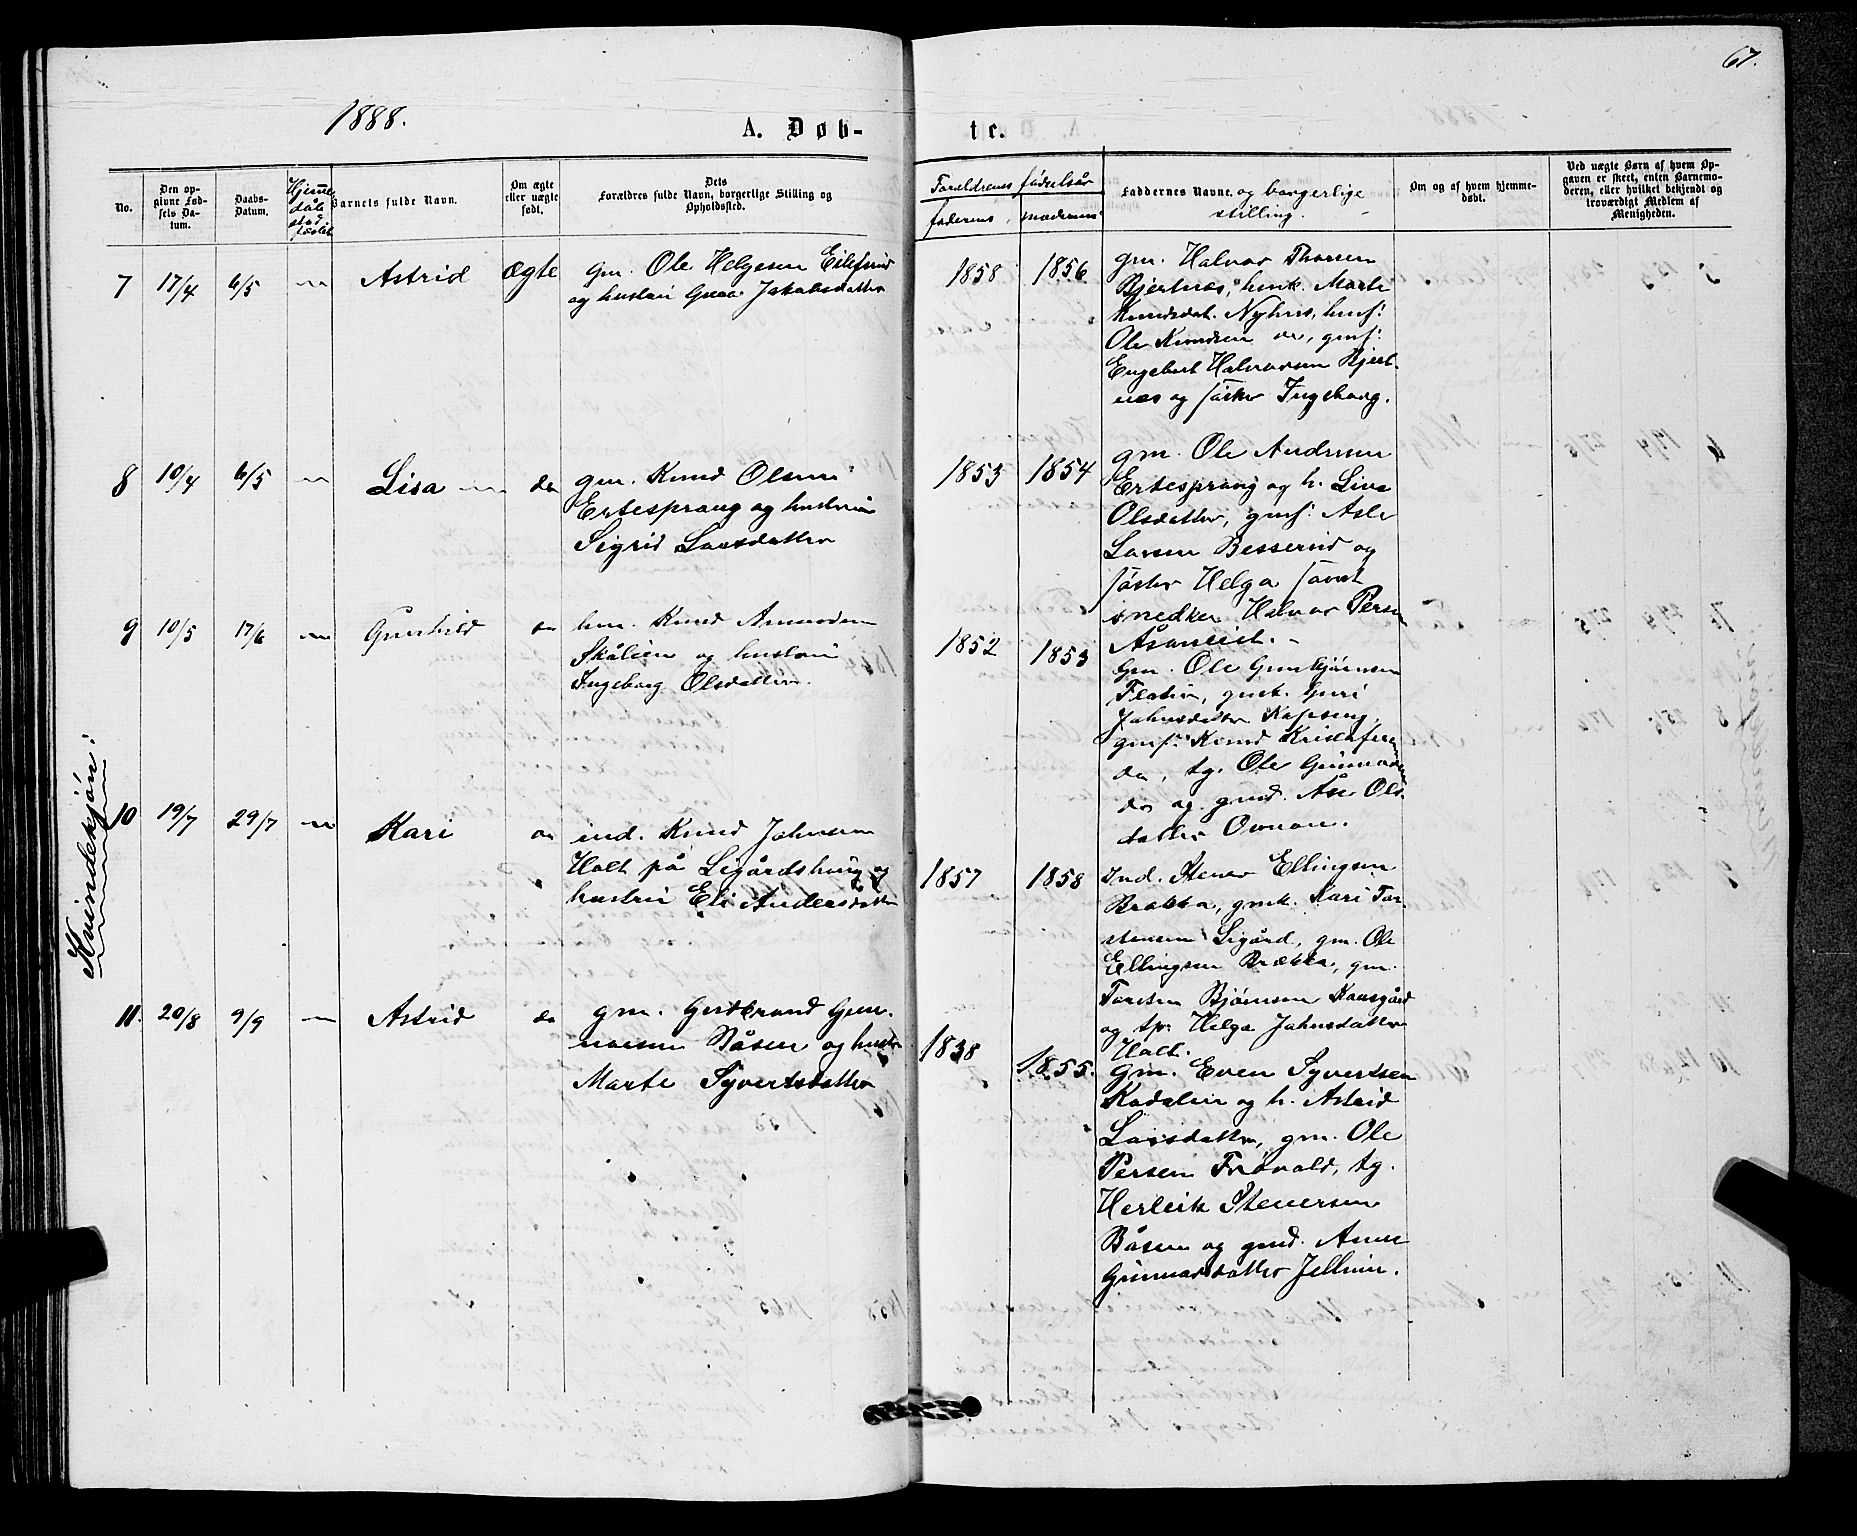 67.
1888.
A. Døb-
te.
No.
Den op-
givne Fød-
sels Da-
tum.
Daabs-
Datum.
Hjemme
døbt
Barnets fulde Navn.
Om ægte
eller uægte
født.
Dets
Forældres fulde Navn, borgerlige Stilling og
Opholdssted.
Forældrenes fødselsår
faderens.
moderens
Faddernes Navne. og borgerlige
stilling.
Om og af hvem hjemme-
døbt.
Ved uægte Børn af hvem Op-
gaven er skeet, enten Barnemo-
deren, eller hvilket bekjendt og
troværdigt Medlem af
Menigheden.
Kvindekjøn:
7 17/4 6/5 Astrid Ægte
gm. Ole Helgesen Eilefsrud
og hustru Guro Jakobsdatter
1858 1856
gm. Halvor Thorsen
Bjertnæs, Marte
Knudsdat. Nyhus,
Ole Knudsen
Engebret Halvorsen Bjert-
næs og søster Ingeborg.
8 10/4 6/5 Lisa do
gm. Knud Olsen
Ertesprang og hustru
Sigrid Larsdatter
1853 1854
gm. Ole Andersen
Ertesprang og h. Liva
Olsdatter, gmf. Asle
Larsen Besserud og
søster Helga samt
snedker Halvor Persen
9 10/5 17/6 Gunhild do
hm. Knud Amundsen
Skålien og hustru
Ingeborg Olsdatter.
1852 1853
gm. Ole Gunbjørnsen
Flaten, gmk. Guri
Jahnsdatter Kapseng,
gmf. Knud Kristofersen
do, tg. Ole Gunnarsen
do og gmd. Åse Ols-
datter
10 19/7 29/7 Kari do
ind. Knud Jahnsen
Holt på Ligårdshaug og
hustru Eli Andersdatter
1857 1858
Ind. Stener Ellingsen
Brække, gmk. Kari Tor-
stensen Ligård, gm. Ole
Ellingsen Brække, gm.
Torsten Bjørnsen Kaasgård
og tp. Helga Jahnsdatter
Holt.
11. 20/8 9/9 Astrid do
gm. Gudbrand Gun-
narsen Båsen og hustru
Marte Syvertsdatter
1838 1855.
gm. Even Syvertsen
Kodalen og h. Astrid
Larsdatter, gm. Ole
Persen Frøvold, tg.
Herleik Stenersen
Båsen og gmd. Anne
Gunnarsdatter Jellum.